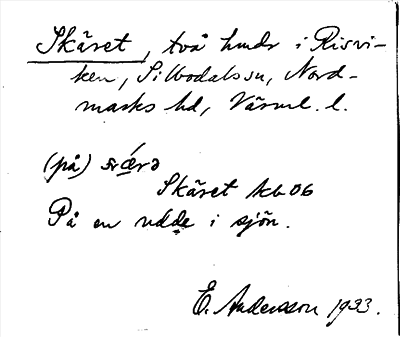 Skäret, två hmdr i Risvi-
ken, Silbodals sn, Nord-
marks hd, Värml. l.
(på)
Skäret kb 06
På en udde i sjön.
E. Andersson 1933.